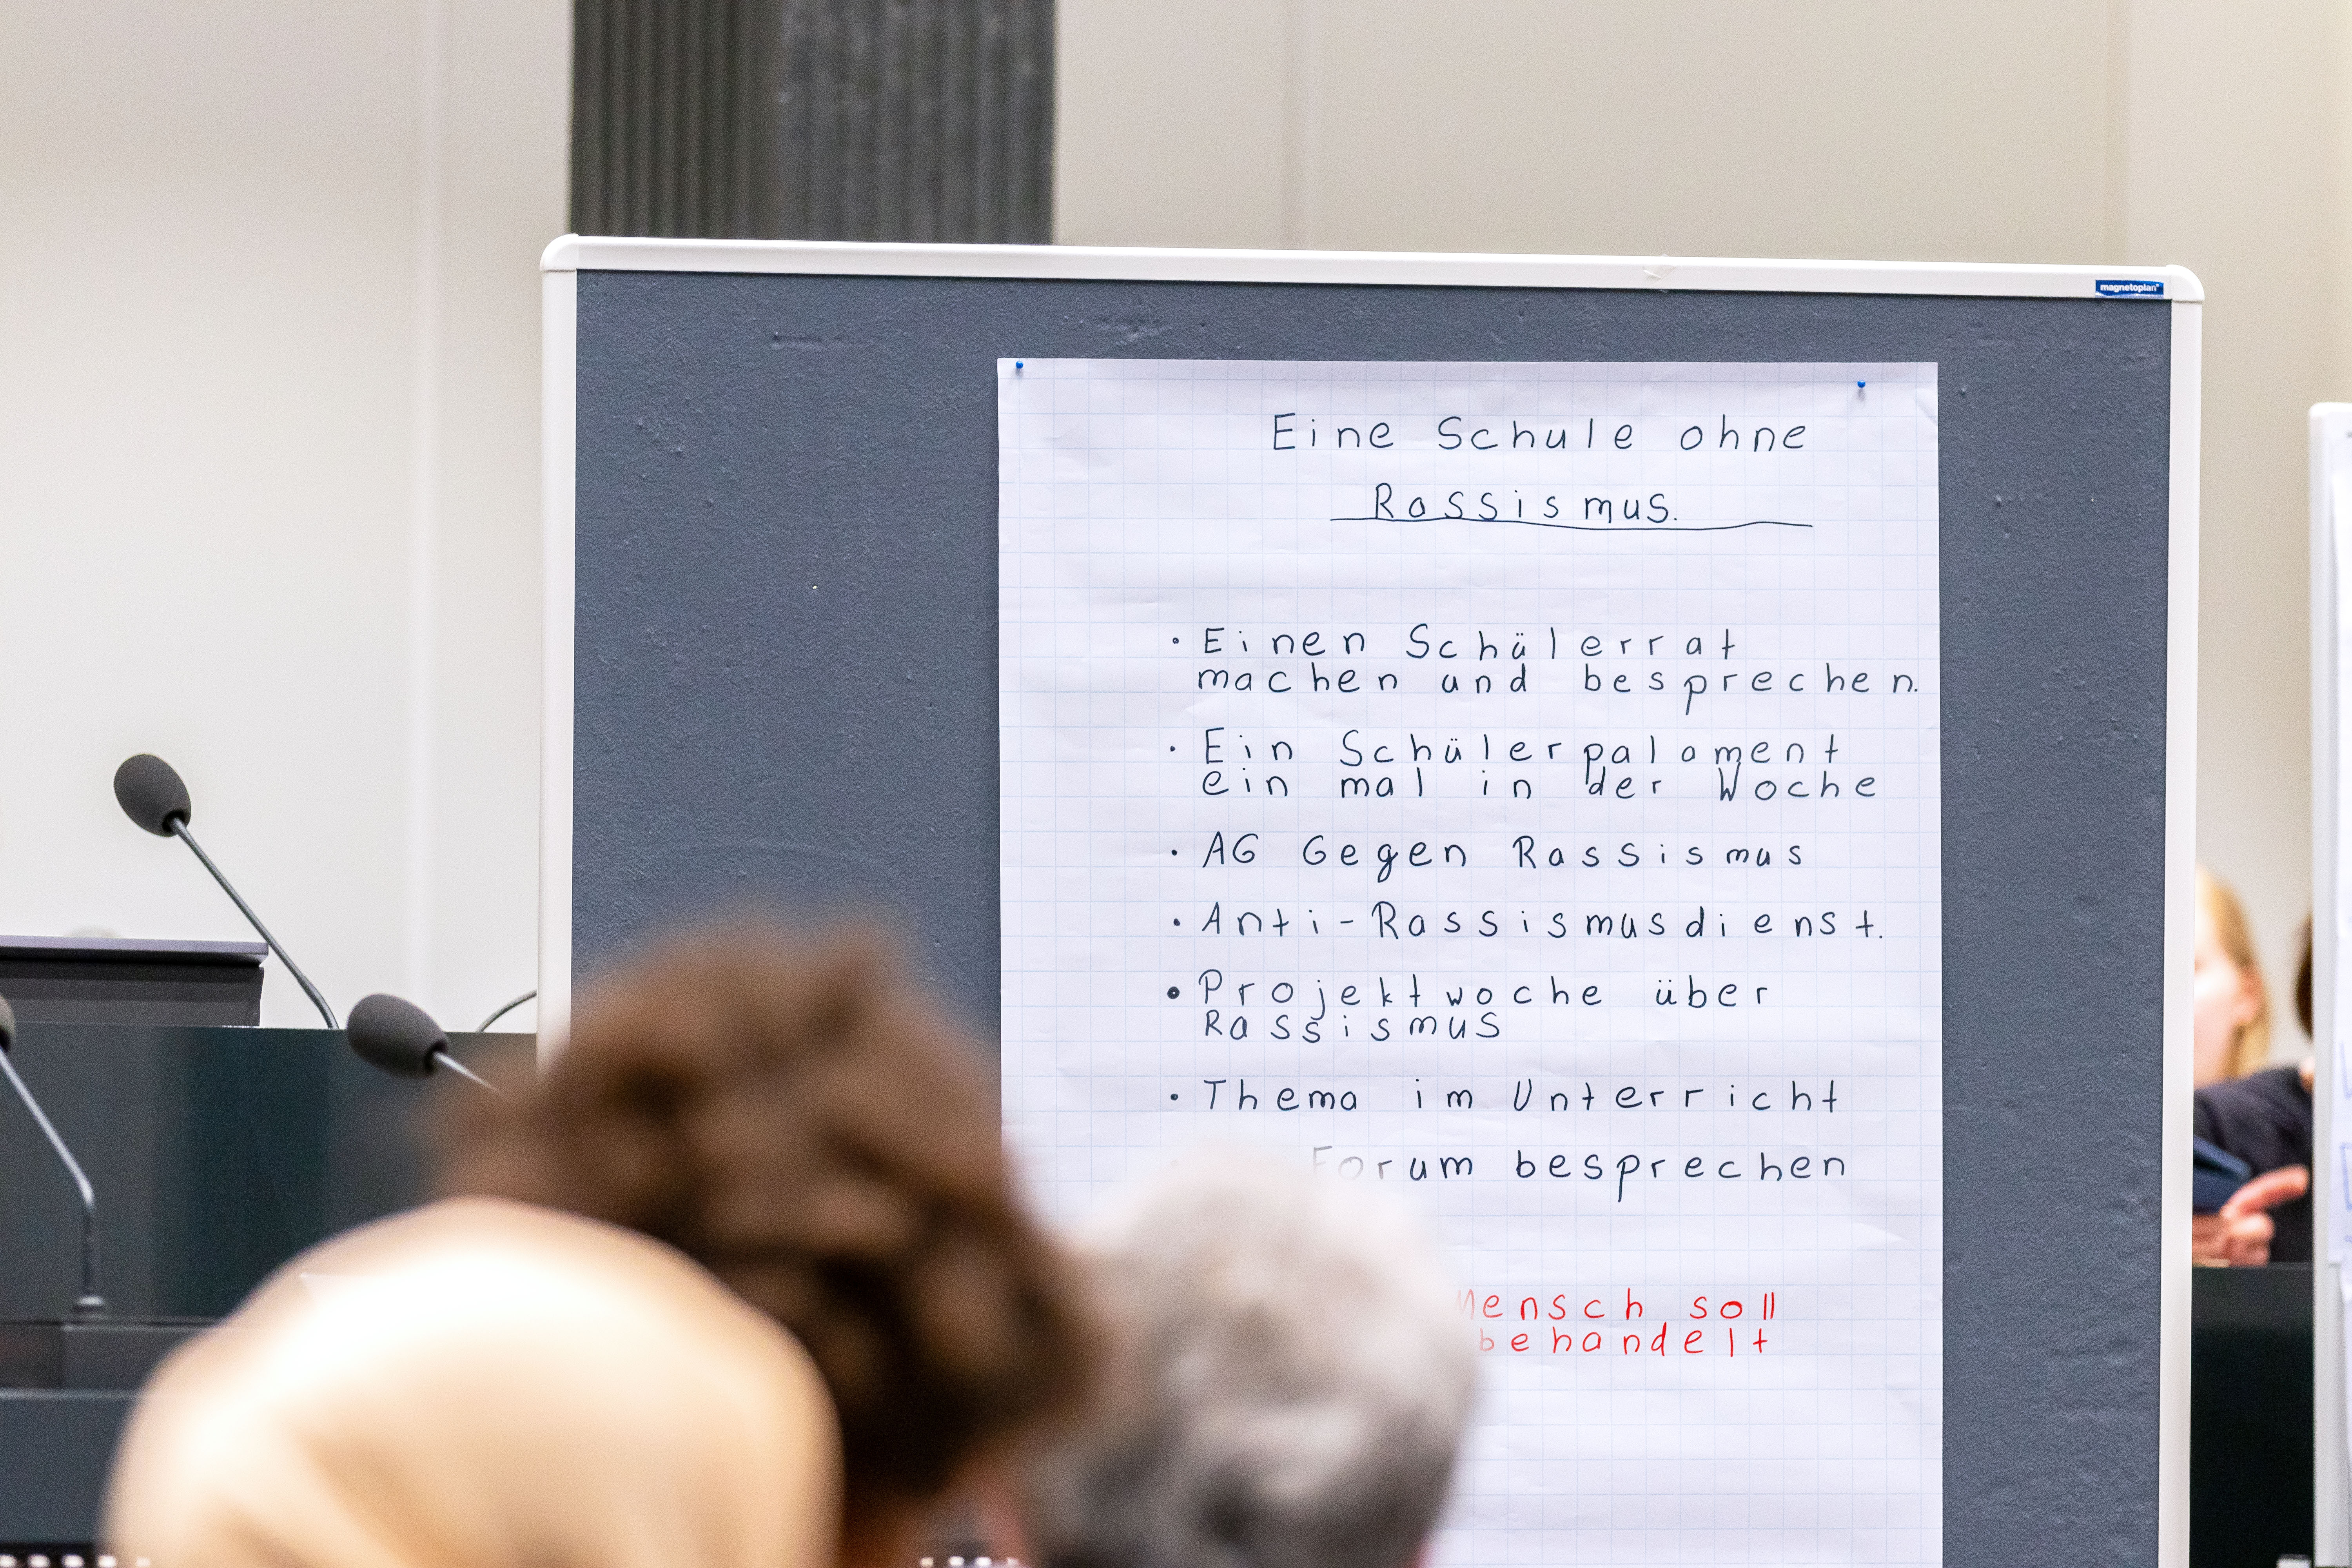 magnetoplan
Eine Schule ohne
Rassismus.
• Einen Schülerrat
machen und besprechen.
• Ein Schülerpalament
ein mal in der Woche
• AG Gegen Rassismus
• Anti-Rassismusdienst.
• Projektwoche über
Rassismus
• Thema im Unterricht
Forum besprechen
Mensch soll
behandelt